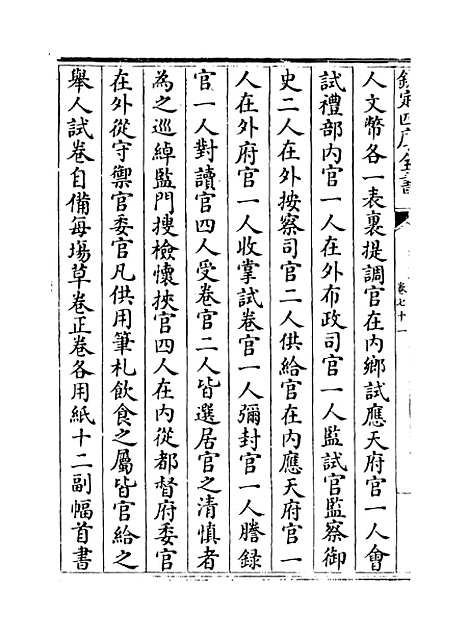 欽定四庫全書
卷七十一
人文幣各一表裏提調官在內鄉試應天府官一人會
試禮部內官一人在外布政司官一人監試官監察御
史二人在外按察司官二人供給官在內應天府官一
人在外府官一人收掌試卷官一人彌封官一人謄錄
官一人對讀官四人受卷官二人皆選居官之清慎者
為之巡綽監門搜檢懷挾官四人在內從都督府委官
在外從守禦官委官凡供用筆札飲食之屬皆官給之
舉人試卷自備每場草卷正卷各用紙十二副幅首書